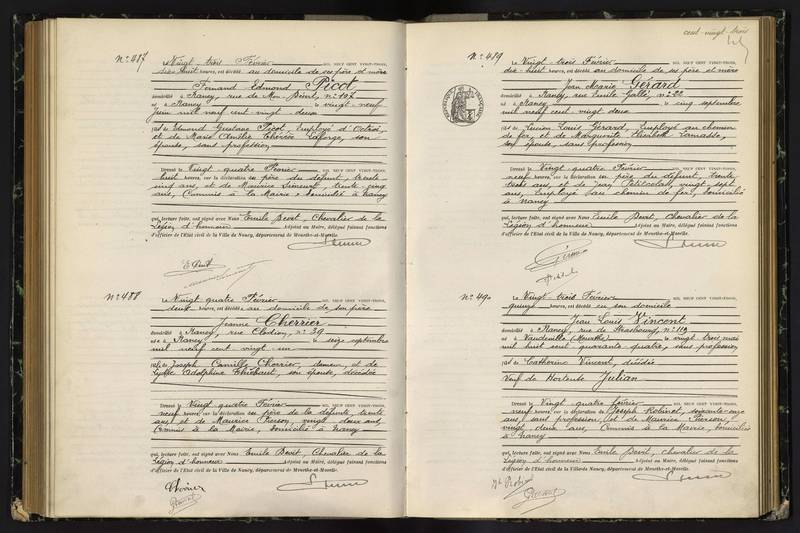 cent-vingt-trois
N° 487
Le Vingt-trois Février MIL NEUF CENT VINGT-TROIS,
dix-huit heures, est décédé au domicile de ses père et mère
Fernand Edmond Picot
domicilié à Nancy, rue de Mon-Désert, n° 107
né à Nancy le vingt-neuf
Juin mil neuf cent vingt-deux
fils de Edmond Gustave Picot, Employé d'Octroi,
et de Marie Thérèse Laforge, son
épouse, sans profession
Dressé le Vingt-quatre Février MIL NEUF CENT VINGT-TROIS,
huit heures, sur la déclaration du père du défunt, trente
cinq ans, et de Maurice Simonet, trente-cinq
ans, Commis à la Mairie, domiciliés à Nancy
qui, lecture faite, ont signé avec Nous Emile Bevit, Chevalier de la
Légion d'honneur Adjoint au Maire, délégué faisant fonctions
d'officier de l'État civil de la Ville de Nancy, département de Meurthe-et-Moselle.
N° 488
Le Vingt-quatre Février MIL NEUF CENT VINGT-TROIS,
deux heures, est décédée au domicile de son père
Jeanne Cherrier
domiciliée à Nancy, rue Clodion, n° 39
née à Nancy le seize septembre
mil neuf cent vingt-un
fille de Joseph Camille Cherrier, et de
Adolphine Thiébaut, son épouse, décédée
Dressé le Vingt-quatre Février MIL NEUF CENT VINGT-TROIS,
neuf heures, sur la déclaration du père de la défunte, trente
ans, et de Maurice Pierson, vingt-deux ans,
Commis à la Mairie, domiciliés à Nancy
qui, lecture faite, ont signé avec Nous Emile Bevit, Chevalier de la
Légion d'honneur Adjoint au Maire, délégué faisant fonctions
d'officier de l'État civil de la Ville de Nancy, département de Meurthe-et-Moselle.
Cherrier
N° 489
Le Vingt-trois Février MIL NEUF CENT VINGT-TROIS,
dix-huit heures, est décédé au domicile de ses père et mère
Jean Marie Gérard
domicilié à Nancy, rue Emile Gallé, n° 22
né à Nancy le cinq septembre
mil neuf cent vingt-deux
fils de Lucien Louis Gérard, Employé au chemin
de fer, et de Marguerite Elisabeth
son épouse, sans profession
Dressé le Vingt-quatre Février MIL NEUF CENT VINGT-TROIS,
neuf heures, sur la déclaration du père du défunt, trente
trois ans, et de Jean Petitcolas, vingt-sept
ans, Employé au chemin de fer, domiciliés
à Nancy
qui, lecture faite, ont signé avec Nous Emile Bevit, Chevalier de la
Légion d'honneur Adjoint au Maire, délégué faisant fonctions
d'officier de l'État civil de la Ville de Nancy, département de Meurthe-et-Moselle.
N° 490
Le Vingt-trois Février MIL NEUF CENT VINGT-TROIS,
quinze heures, est décédé en son domicile
Jean Louis Vincent
domicilié à Nancy, rue de Strasbourg, n° 119
né à Vaudeville (Meurthe) le vingt-trois mai
mil huit cent quarante-quatre, sans profession
fils de Catherine Vincent, décédée
Veuf de Hortense Julian
Dressé le Vingt-quatre février MIL NEUF CENT VINGT-TROIS,
neuf heures, sur la déclaration de Joseph Robinet, soixante-onze
ans, sans profession, et de Maurice Pierson,
vingt-deux ans, Commis à la Mairie, domiciliés
à Nancy
qui, lecture faite, ont signé avec Nous Emile Bevit, Chevalier de la
Légion d'honneur Adjoint au Maire, délégué faisant fonctions
d'officier de l'État civil de la Ville de Nancy, département de Meurthe-et-Moselle.